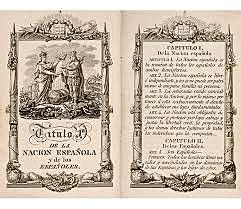 Título I.
DE LA
NACION ESPAÑOLA
y de los
ESPAÑOLES.
CAPITULO I.
De la Nacion española
ARTICULO 1. La Nacion española es
la reunion de todos los españoles de
ambos hemisferios.
ART. 2. La Nacion española es libre é
independiente, y no es ni puede ser patri-
monio de ninguna familia ni persona.
ART. 3. La soberanía reside esencial-
mente en la Nacion, y por lo mismo per-
tenece á esta exclusivamente el derecho
de establecer sus leyes fundamentales.
ART. 4. La Nacion está obligada á
conservar y proteger por leyes sabias y
justas la libertad civil, la propiedad,
y los demas derechos legítimos de todos
los individuos que la componen.
CAPITULO II.
De los Españoles.
ART. 5. Son Españoles:
Primero: Todos los hombres libres na-
cidos y avecindados en los dominios
de las Españas, y los hijos de estos.